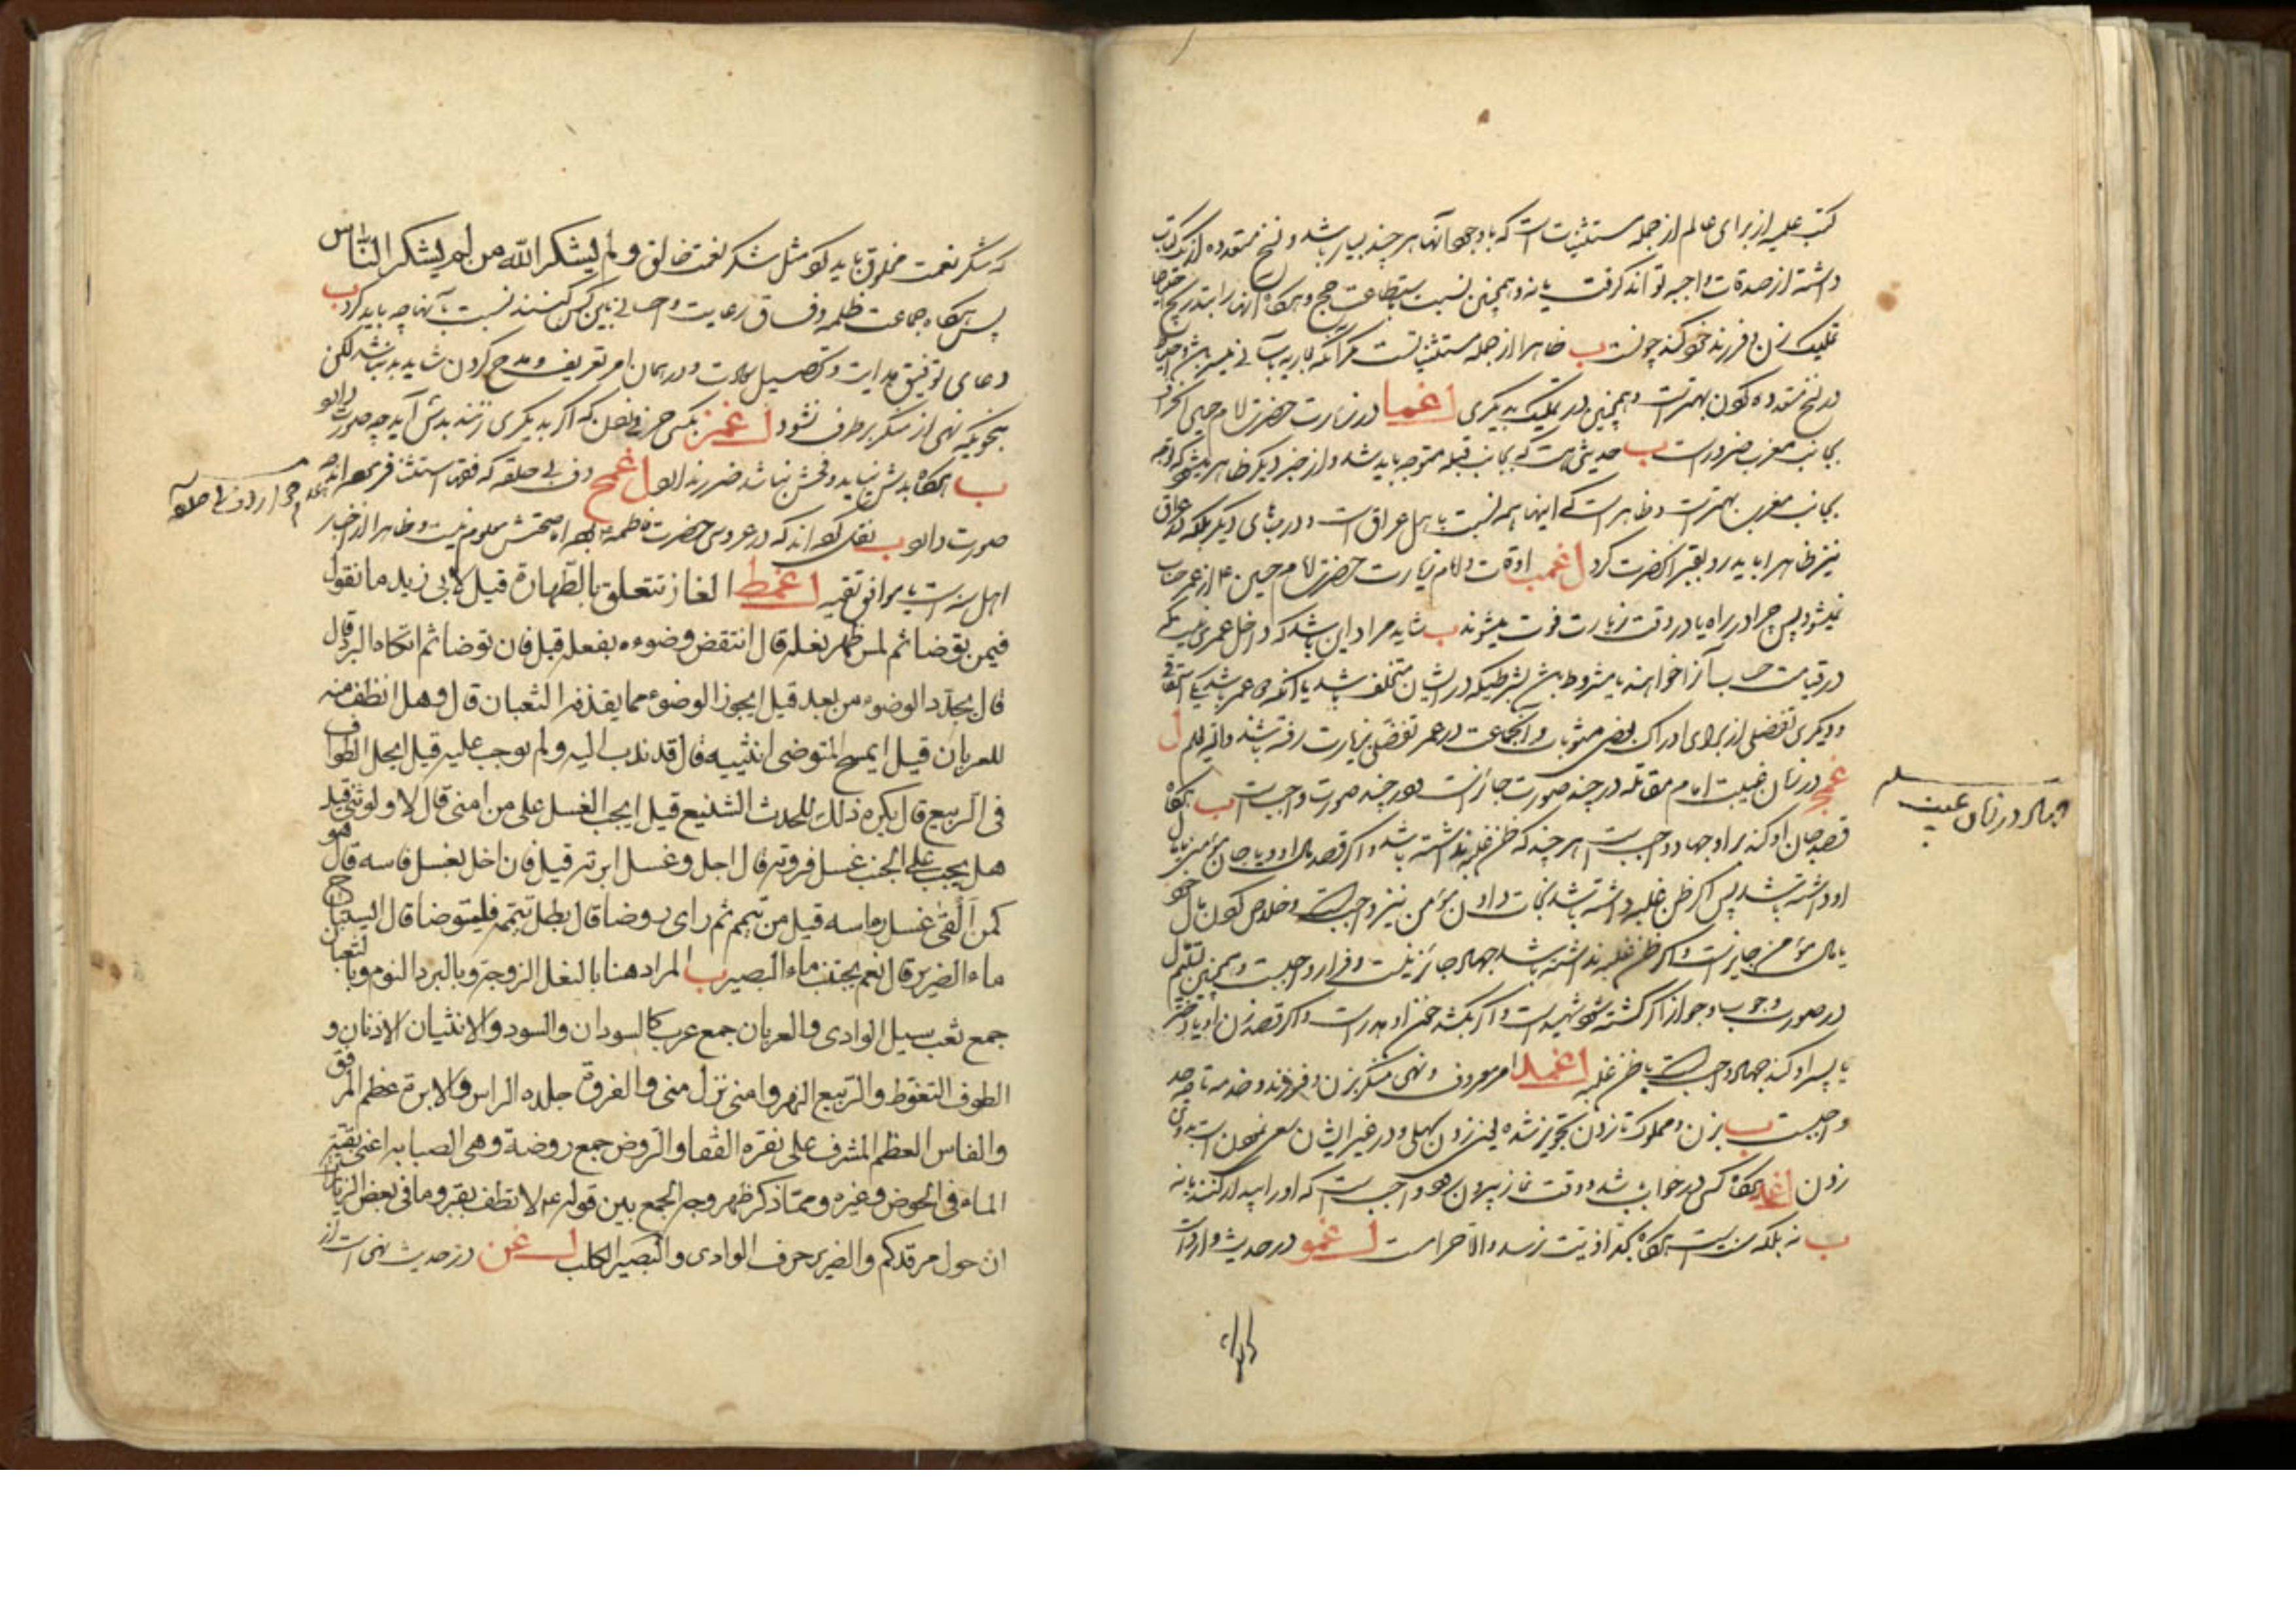 کتب علمیه از برای عالم از جمله مستثنیات است که با وجود آنها هر چند بسیار باشد و نسخ متعدده از یک کتاب
داشته از صدقات واجبه تواند گرفت یا نه و همچنین نسبت باستطاعت حج و هرگاه آنها را بتدریج
تملیک زن و فرزند خود کند چونست ب ظاهرا از جمله مستثنیاتست مگر آنکه
در نسخ متعدده بهترست و همچنین در تملیک بدیگری ا غما در زیارت حضرت امام حسین
بجانب مغرب ضرورست ب حدیثی هست که بجانب قبله متوجه باید شد و از خبر دیگر ظاهر میشود که
بجانب مغرب بهترست و ظاهر است که اینها همه نسبت باهل عراق است و در جاهای دیگر بلکه در عراق
نیز ظاهرا باید رو بقبر آنحضرت کرد ا غمب اوقات ایام زیارت حضرت امام حسین ع از عمر حساب
نمیشود پس چرا در راه یا در وقت زیارت فوت میشوند ب شاید مراد این باشد که داخل عمری نیست که
در قیامت حساب آنرا خواهند یا مشروط باشد بشرطیکه در ایشان متخلف باشد یا آنکه دو عمر باشد یکی استحقاقی
و دیگری تفضلی از برای ادراک بعضی مثوبات و آنجماعت در عمر تفضلی بزیارت رفته باشند والله یعلم ا
غمج در زمان غیبت امام مقاتله در چند صورت جائزست و در چند صورت واجبست ب هرگاه
قصد جان او کند بر او جهاد واجبست هر چند که ظن غلبه نداشته باشد و اگر قصد مال او و یا جان مؤمنی یا مال
او داشته باشد پس اگر ظن غلبه داشته باشد نجات دادن مؤمن نیز واجبست و خلاص کردن مال خود
یا مال مؤمن جایزست و اگر ظن غلبه نداشته باشد جهاد جائز نیست و فرار واجبست و همچنین تسلیم مال
در صورت وجوب و جواز اگر کشته شود شهید است و اگر بکشد خون او هدر است و اگر قصد زن او یا دختر
یا پسر او کند جهاد واجبست با ظن غلبه ا غمد امر معروف و نهی منکر بزن و فرزند و خدمه تا چه حد
واجبست ب بزن و مملوک تا زدن تجویز شده یعنی زدن سهلی و در غیر ایشان سعی نمودن است بدون
زدن ا غمه هرگاه کسی در خواب باشد و وقت نماز بیرون رود واجبست که او را بیدار کنند یا نه
ب نه بلکه سنت است هرگاه بحد اذیت نرسد والا حرامست ا غمو در حدیث وارد است
جهاد در زمان غیبت
که شکر نعمت مخلوق باید کرد مثل شکر نعمت خالق و لم یشکر الله من لم یشکر الناس
پس هرگاه جماعت ظلمه و فساق رعایت و احسانی باین کس کنند نسبت بآنها چه باید کرد ب
دعای توفیق هدایت و تحصیل کمالات و در همان امر تعریف و مدح کردن شاید بد نباشد لکن
بنحویکه نهی از منکر برطرف نشود ا غمز بکسی حرفی زدن که اگر بدیگری زنند بدش آید چه صورت دارد
ب هرگاه بدش نیاید و فحش نباشد ضرر ندارد ا غمح دف بی حلقه که فقها استثنا فرموده اند چه
صورت دارد ب نقل کرده اند که در عروسی حضرت فاطمه ع بوده اما صحتش معلوم نیست و ظاهرا از اخبار
اهل سنت است یا موافق تقیه ا غمط الغاز تتعلق بالطهارة قیل لابی زید ما نقول
فیمن توضا ثم لمس ظهر نعله قال انتقض وضوءه بفعله قیل فان توضا ثم اتکاه البرد قال
قال یجدد الوضوء من بعد قیل ایجوز الوضوء مما یقذفه الثعبان قال و هل انظف منه
للعربان قیل ایمسح المتوضی انثییه قال قد ندب الیه و لم یوجب علیه قیل ایحل الطواف
فی الربیع قال یکره ذلک للحدث الشنیع قیل ایجب الغسل علی من امنی قال لا و لو ثنی قیل
هل یجب علی الجنب غسل فروته قال اجل و غسل ابرته قیل فان اخل بغسل فاسه قال هو
کمن القی غسل راسه قیل من تیمم ثم رای روضا قال بطل تیممه فلیتوضا قال ایستباح
ماء الضریر قال نعم یجتنب ماء البصیر ب المراد هنا بالنعل الزوجة و بالبرد النوم و بالثعبان
جمع ثعب سیل الوادی و العربان جمع عرب کالسودان والسود و الانثیان الاذنان و
الطوف التغوط و الربیع النهر و امنی نزل منی و الفروة جلده الراس و الابرة عظم المرفق
والفاس العظم المشرف علی نقرة القفا و الروض جمع روضة و هی الصبابه اعنی بقیة
الماء فی الحوض و غیره و مما ذکر ظهر وجه الجمع بین قوله ع لا تطف بقبر و ما فی بعض الزیارات
ان حول مرقدکم و الضریر حرف الوادی و البصیر الکلب ا غن در حدیث نهی است از